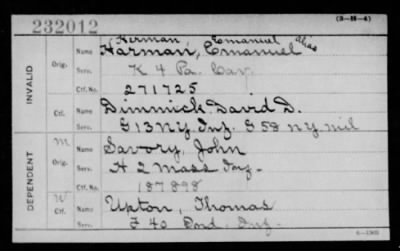 (3-H-4)
232012
Herman, Emanuel alias
INVALID
Orig.
Name Harman, Emanuel
Serv. K 4 Pa. Cav.
Ctf. No. 271725
Ctf.
Name Dimmick David D.
Serv. G 13 NY Inf. G 58 N Y Mil
DEPENDENT
M
Orig.
Name Savory, John
Serv. H 2 Mass Inf.
Ctf. No. 187898
W
Ctf.
Name Upton, Thomas
Serv. F 40 Inf.